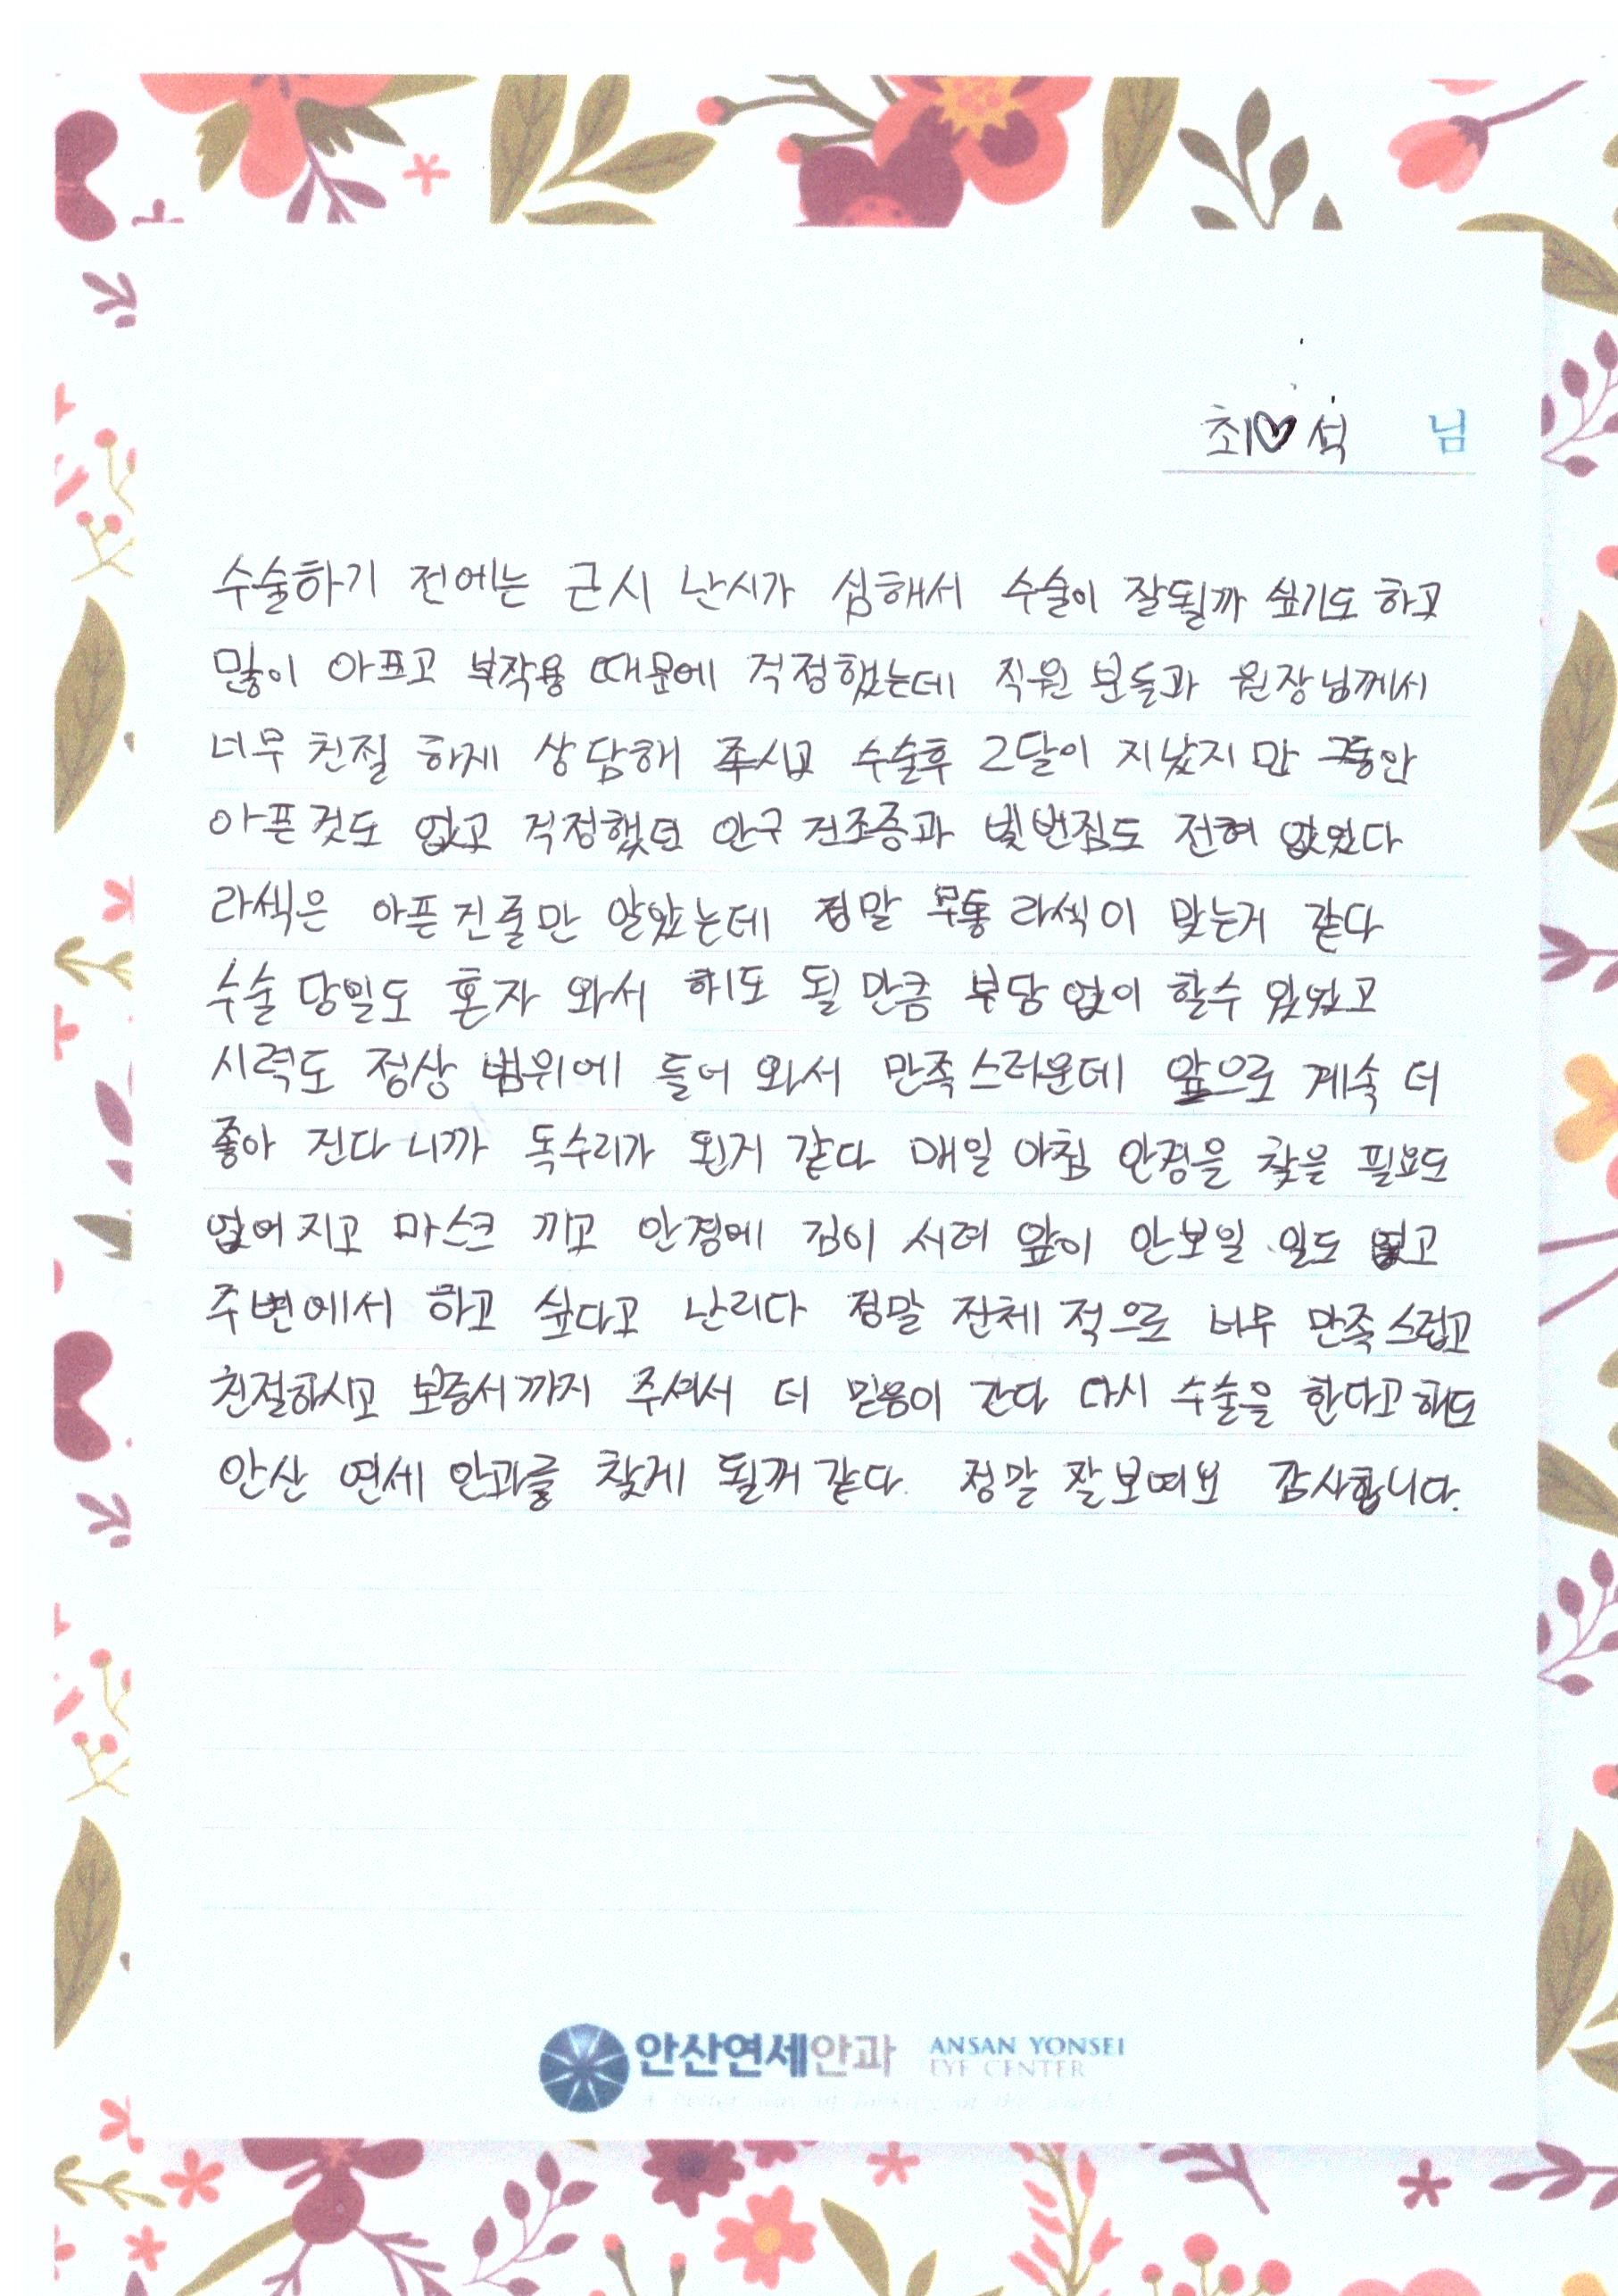 최♡석 님
수술하기 전에는 근시 난시가 심해서 수술이 잘될까 싶기도 하고
많이 아프고 부작용 때문에 걱정했는데 직원 분들과 원장님께서
너무 친절 하게 상담해 주시고 수술후 2달이 지났지만 그동안
아픈것도 없고 걱정했던 안구건조증과 빛번짐도 전혀 없었다
라섹은 아픈진줄만 알았는데 정말 무통라섹이 맞는거 같다
수술 당일도 혼자 와서 해도 될만큼 부담없이 할수 있었고
시력도 정상 범위에 들어 와서 만족스러운데 앞으로 계속 더
좋아 진다니까 독수리가 된거 같다 매일 아침 안경을 찾을 필요도
없어지고 마스크 끼고 안경에 김이 서려 앞이 안보일 일도 없고
주변에서 하고 싶다고 난리다 정말 전체적으로 너무 만족스럽고
친절하시고 보증서까지 주셔서 더 믿음이 간다 다시 수술을 한다고해도
안산 연세 안과를 찾게 될꺼같다. 정말 잘보여요 감사합니다.
안산연세안과 ANSAN YONSEI
EYE CENTER